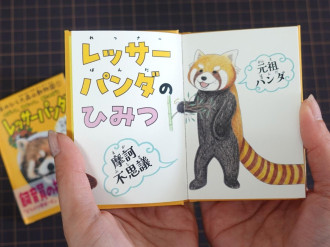 レッサー
パンダの
ひみつ
摩訶
不思議
元祖
パンダ
レッサーパンダ